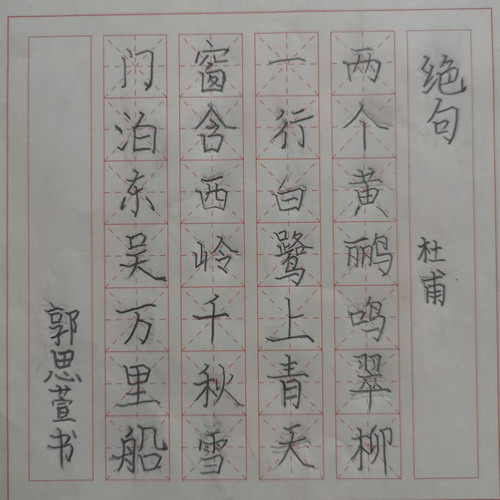 绝句
杜甫
两个黄鹂鸣翠柳
一行白鹭上青天
窗含西岭千秋雪
门泊东吴万里船
郭思萱书